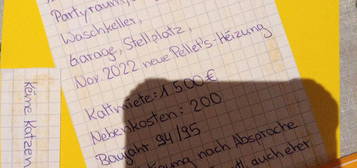 Partyraum,
Waschkeller,
Garage, Stellplatz,
Nov. 2022 neue Pellet's-Heizung
Kaltmiete: 1.500 €
Nebenkosten: 200
Baujahr 94/95
nach Absprache
auch eher
Keine Katzen